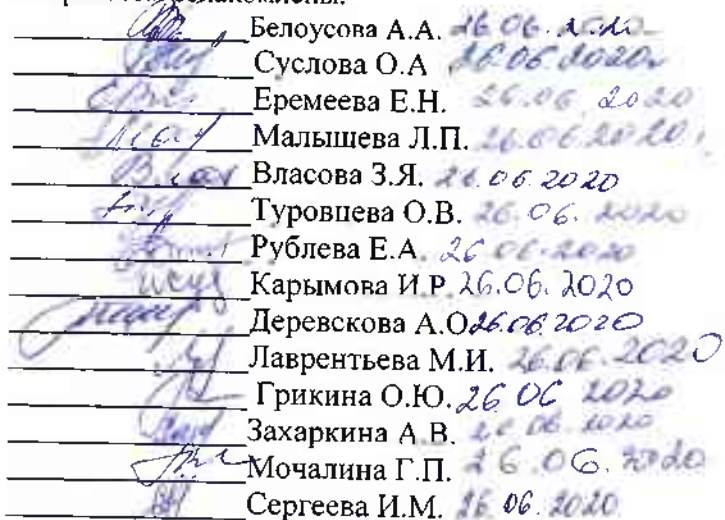 Белоусова А.А. 26.06.2020
Суслова О.А 26.06.2020
Еремеева Е.Н. 26.06 2020
Малышева Л.П. 26.06.2020
Власова З.Я. 26.06.2020
Туровцева О.В. 26.06.2020
Рублева Е.А. 26.06.2020
Карымова И.Р. 26.06.2020
Деревскова А.О 26.06.2020
Лаврентьева М.И. 26.06.2020
Грикина О.Ю. 26 06 2020
Захаркина А.В. 26 06 2020
Мочалина Г.П. 26.06.2020
Сергеева И.М. 26.06.2020